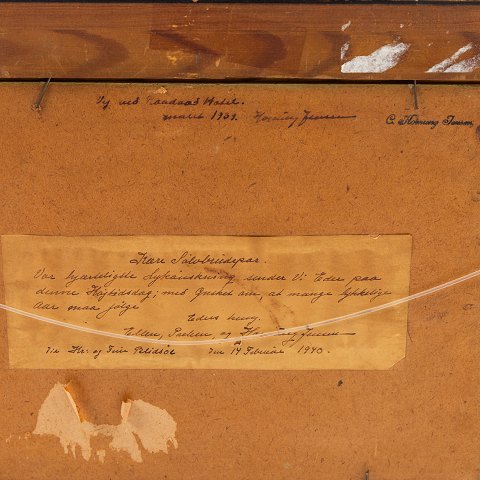 Vy ved Randaas Hotel.
malet 1939. Hornung Jensen
C. Hornung Jensen
Kære Sølvbrudepar.
Vor hjærteligste Lykønskning sender Vi Eder paa
denne Højtidsdag; med Ønsket om, at mange lykkelige
Aar maa følge
Eders heng.
Ellen, og Hornung Jensen
Til Hr. og Fru den 14 Februar 1940.